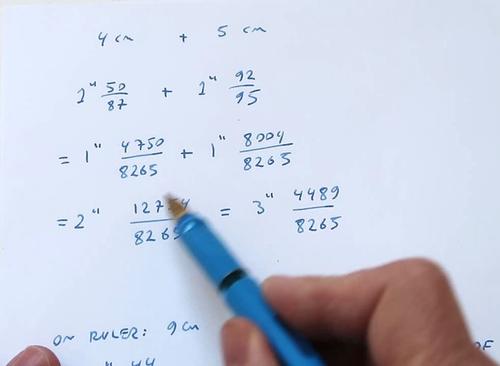 4 cm + 5 cm
1" 50/87 + 1" 92/95
= 1" 4750/8265 + 1" 8004/8265
= 2" = 3" 4489/8265
ON RULER: 9 cm
" 44